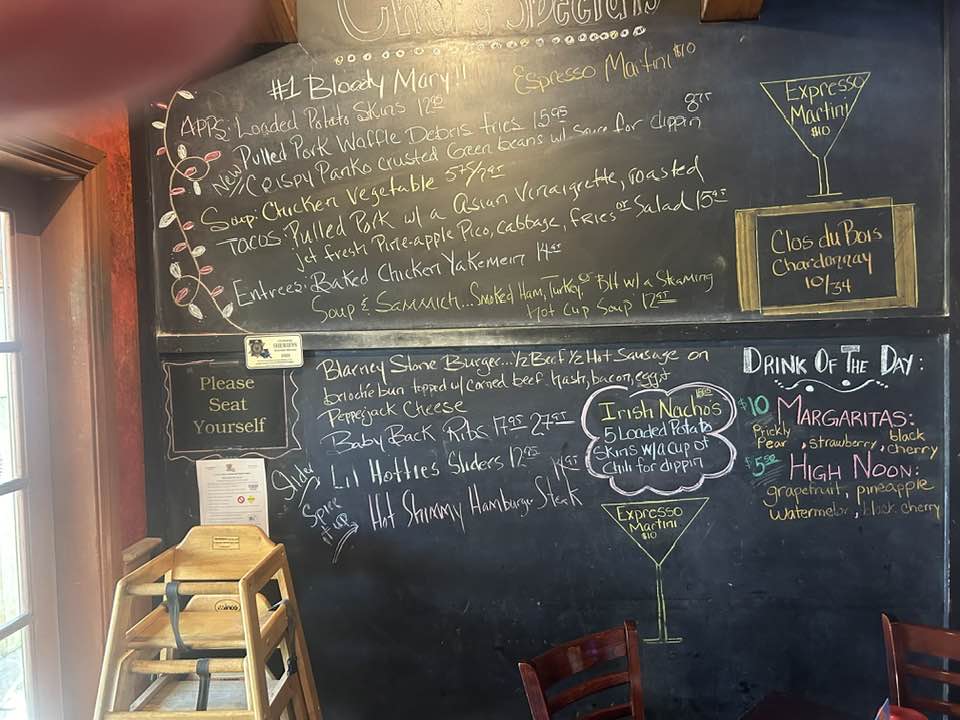 Chef's Specials
#1 Bloody Mary!! Espresso Martini $10
APPS: Loaded Potato Skins 12.95
Pulled Pork Waffle Debris fries 15.95
New! Crispy Panko crusted Green beans w/ sauce for dippin 8.95
Soup: Chicken Vegetable 5.95/7.95
Tacos: Pulled Pork w/ a Asian Vinaigrette, roasted
jet fresh Pine-apple Pico, cabbage, fries or Salad 15.95
Entrees: Baked Chicken Yakemein 14.95
Soup & Sammich... Smoked Ham, Turkey, or Blt w/ a Steaming
Hot Cup Soup 12.95
Expresso
Martini
$10
Clos du Bois
Chardonnay
10/34
Please
Seat
Yourself
Blarney Stone Burger... 1/2 Beef 1/2 Hot Sausage on
brioche bun topped w/ corned beef hash, bacon, egg &
Pepperjack Cheese
Baby Back Ribs 17.95 27.95
Lil Hotties Sliders 12.95
Hot Shimmy Hamburger Steak 14.95
Spice
it up
Irish Nachos
5 Loaded Potato
Skins w/ a cup of
Chili for dippin
Expresso
Martini
$10
DRINK OF THE DAY:
$10 MARGARITAS:
Prickly
Pear, strawberry, black
cherry
$5.50 HIGH NOON:
grapefruit, pineapple
watermelon, black cherry
winco